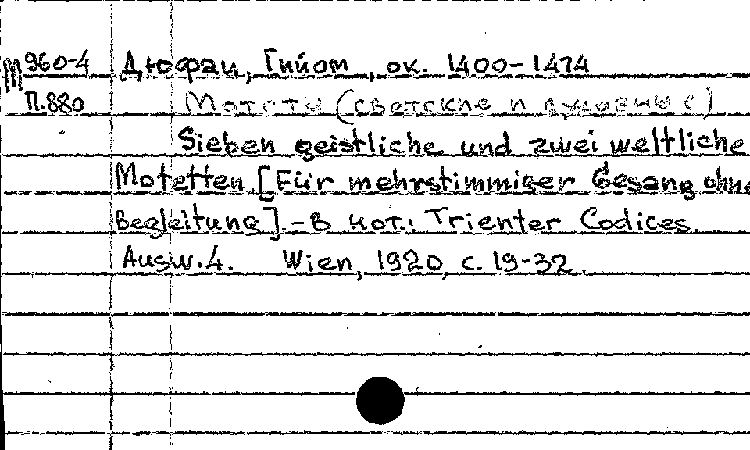 М960-4 Дюфаи, Гийом, ок. 1400-1474
П.880 Мотеты (светские и духовные)
Sieben geistliche und zwei weltliche
Motetten [Für mehrstimmiger Gesang ohne
Begleitung]. - В нот.: Trienter Codices.
Ausw. 4. Wien, 1920, с. 19-32.